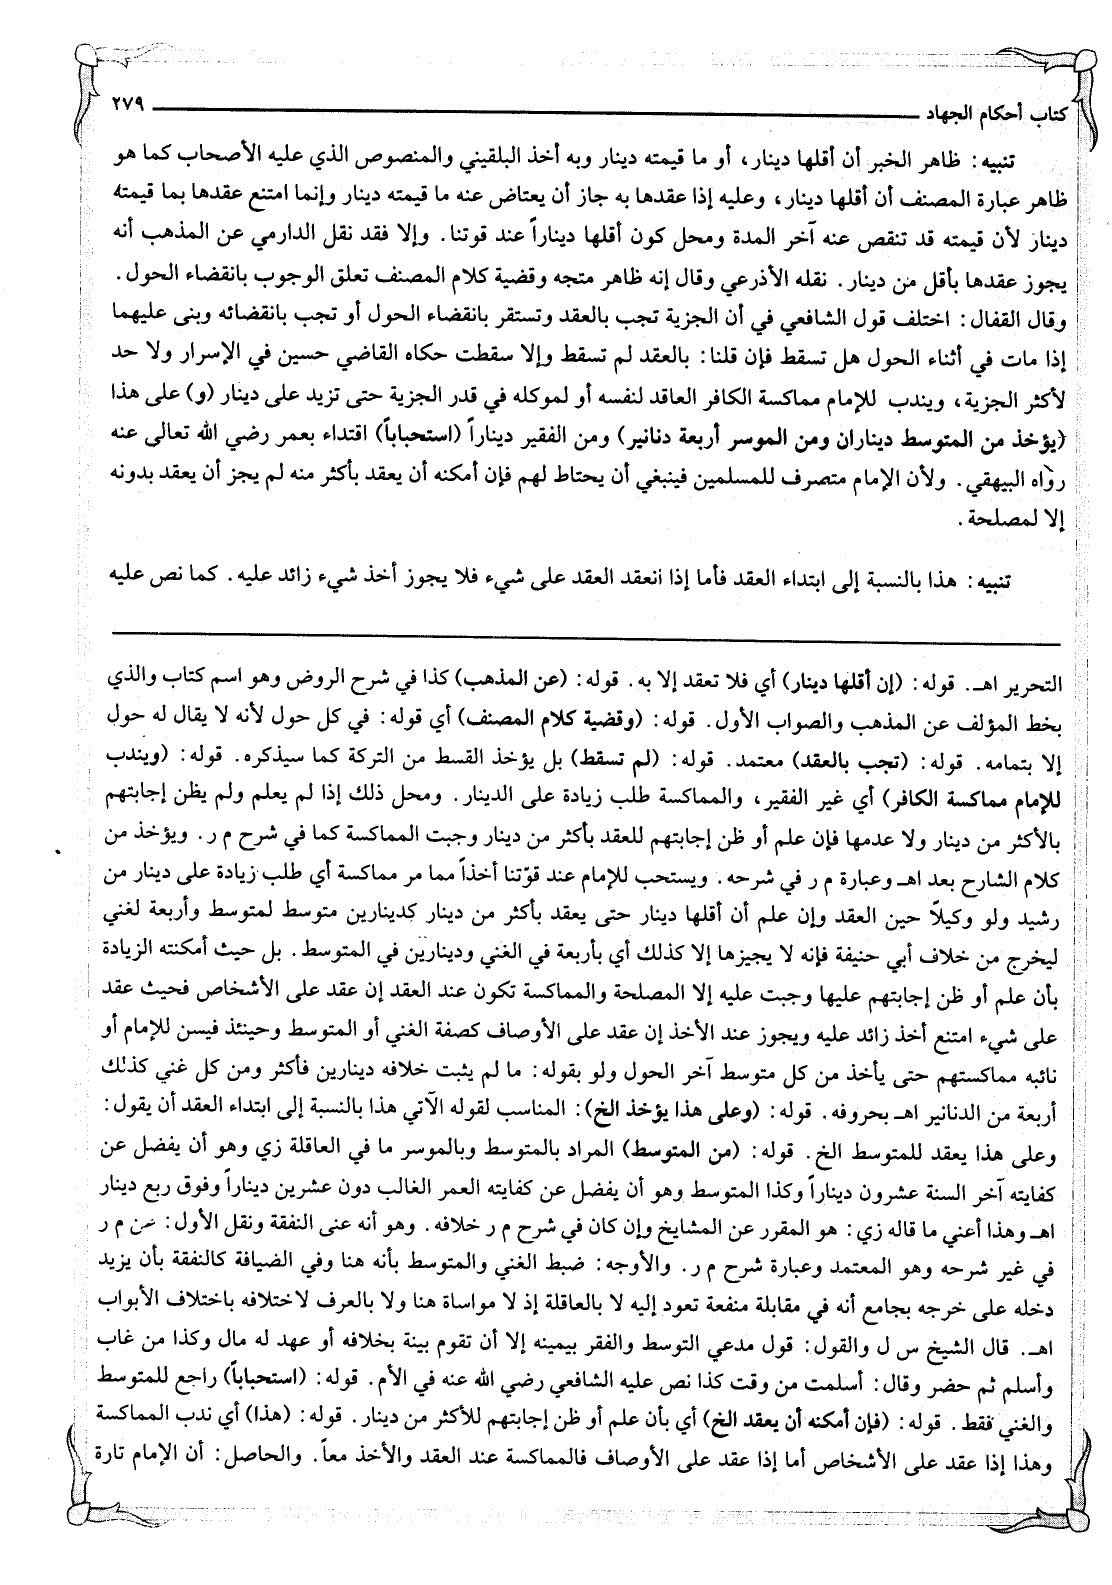 كتاب أحكام الجهاد ٢٧٩
تنبيه: ظاهر الخبر أن أقلها دينار، أو ما قيمته دينار وبه أخذ البلقيني والمنصوص الذي عليه الأصحاب كما هو
ظاهر عبارة المصنف أن أقلها دينار، وعليه إذا عقدها به جاز أن يعتاض عنه ما قيمته دينار وإنما امتنع عقدها بما قيمته
دينار لأن قيمته قد تنقص عنه آخر المدة ومحل كون أقلها ديناراً عند قوتنا. وإلا فقد نقل الدارمي عن المذهب أنه
يجوز عقدها بأقل من دينار. نقله الأذرعي وقال إنه ظاهر متجه وقضية كلام المصنف تعلق الوجوب بانقضاء الحول.
وقال القفال: اختلف قول الشافعي في أن الجزية تجب بالعقد وتستقر بانقضاء الحول أو تجب بانقضائه وبنى عليهما
إذا مات في أثناء الحول هل تسقط فإن قلنا: بالعقد لم تسقط وإلا سقطت حكاه القاضي حسين في الإسرار ولا حد
لأكثر الجزية، ويندب للإمام مماكسة الكافر العاقد لنفسه أو لموكله في قدر الجزية حتى تزيد على دينار (و) على هذا
(يؤخذ من المتوسط ديناران ومن الموسر أربعة دنانير) ومن الفقير ديناراً (استحباباً) اقتداء بعمر رضي الله تعالى عنه
رواه البيهقي. ولأن الإمام متصرف للمسلمين فينبغي أن يحتاط لهم فإن أمكنه أن يعقد بأكثر منه لم يجز أن يعقد بدونه
إلا لمصلحة.
تنبيه: هذا بالنسبة إلى ابتداء العقد فأما إذا انعقد العقد على شيء فلا يجوز أخذ شيء زائد عليه. كما نص عليه
التحرير اهـ. قوله: (إن أقلها دينار) أي فلا تعقد إلا به. قوله: (عن المذهب) كذا في شرح الروض وهو اسم كتاب والذي
بخط المؤلف عن المذهب والصواب الأول. قوله: (وقضية كلام المصنف) أي قوله: في كل حول لأنه لا يقال له حول
إلا بتمامه. قوله: (تجب بالعقد) معتمد. قوله: (لم تسقط) بل يؤخذ القسط من التركة كما سيذكره. قوله: (ويندب
للإمام مماكسة الكافر) أي غير الفقير، والمماكسة طلب زيادة على الدينار. ومحل ذلك إذا لم يعلم ولم يظن إجابتهم
بالأكثر من دينار ولا عدمها فإن علم أو ظن إجابتهم للعقد بأكثر من دينار وجبت المماكسة كما في شرح م ر. ويؤخذ من
كلام الشارح بعد اهـ وعبارة م ر في شرحه. ويستحب للإمام عند قوّتنا أخذاً مما مر مماكسة أي طلب زيادة على دينار من
رشيد ولو وكيلاً حين العقد وإن علم أن أقلها دينار حتى يعقد بأكثر من دينار كدينارين متوسط لمتوسط وأربعة لغني
ليخرج من خلاف أبي حنيفة فإنه لا يجيزها إلا كذلك أي بأربعة في الغني ودينارين في المتوسط. بل حيث أمكنته الزيادة
بأن علم أو ظن إجابتهم عليها وجبت عليه إلا المصلحة والمماكسة تكون عند العقد إن عقد على الأشخاص فحيث عقد
على شيء امتنع أخذ زائد عليه ويجوز عند الأخذ إن عقد على الأوصاف كصفة الغني أو المتوسط وحينئذ فيسن للإمام أو
نائبه مماكستهم حتى يأخذ من كل متوسط آخر الحول ولو بقوله: ما لم يثبت خلافه دينارين فأكثر ومن كل غني كذلك
أربعة من الدنانير اهـ بحروفه. قوله: (وعلى هذا يؤخذ الخ): المناسب لقوله الآتي هذا بالنسبة إلى ابتداء العقد أن يقول:
وعلى هذا يعقد للمتوسط الخ. قوله: (من المتوسط) المراد بالمتوسط وبالموسر ما في العاقلة زي وهو أن يفضل عن
كفايته آخر السنة عشرون ديناراً وكذا المتوسط وهو أن يفضل عن كفايته العمر الغالب دون عشرين ديناراً وفوق ربع دينار
اهـ وهذا أعني ما قاله زي: هو المقرر عن المشايخ وإن كان في شرح م ر خلافه. وهو أنه عنى النفقة ونقل الأول: عن م ر
في غير شرحه وهو المعتمد وعبارة شرح م ر. والأوجه: ضبط الغني والمتوسط بأنه هنا وفي الضيافة كالنفقة بأن يزيد
دخله على خرجه بجامع أنه في مقابلة منفعة تعود إليه لا بالعاقلة إذ لا مواساة هنا ولا بالعرف لاختلافه باختلاف الأبواب
اهـ. قال الشيخ س ل والقول: قول مدعي التوسط والفقر بيمينه إلا أن تقوم بينة بخلافه أو عهد له مال وكذا من غاب
وأسلم ثم حضر وقال: أسلمت من وقت كذا نص عليه الشافعي رضي الله عنه في الأم. قوله: (استحباباً) راجع للمتوسط
والغني فقط. قوله: (فإن أمكنه أن يعقد الخ) أي بأن علم أو ظن إجابتهم للأكثر من دينار. قوله: (هذا) أي ندب المماكسة
وهذا إذا عقد على الأشخاص أما إذا عقد على الأوصاف فالمماكسة عند العقد والأخذ معاً. والحاصل: أن الإمام تارة